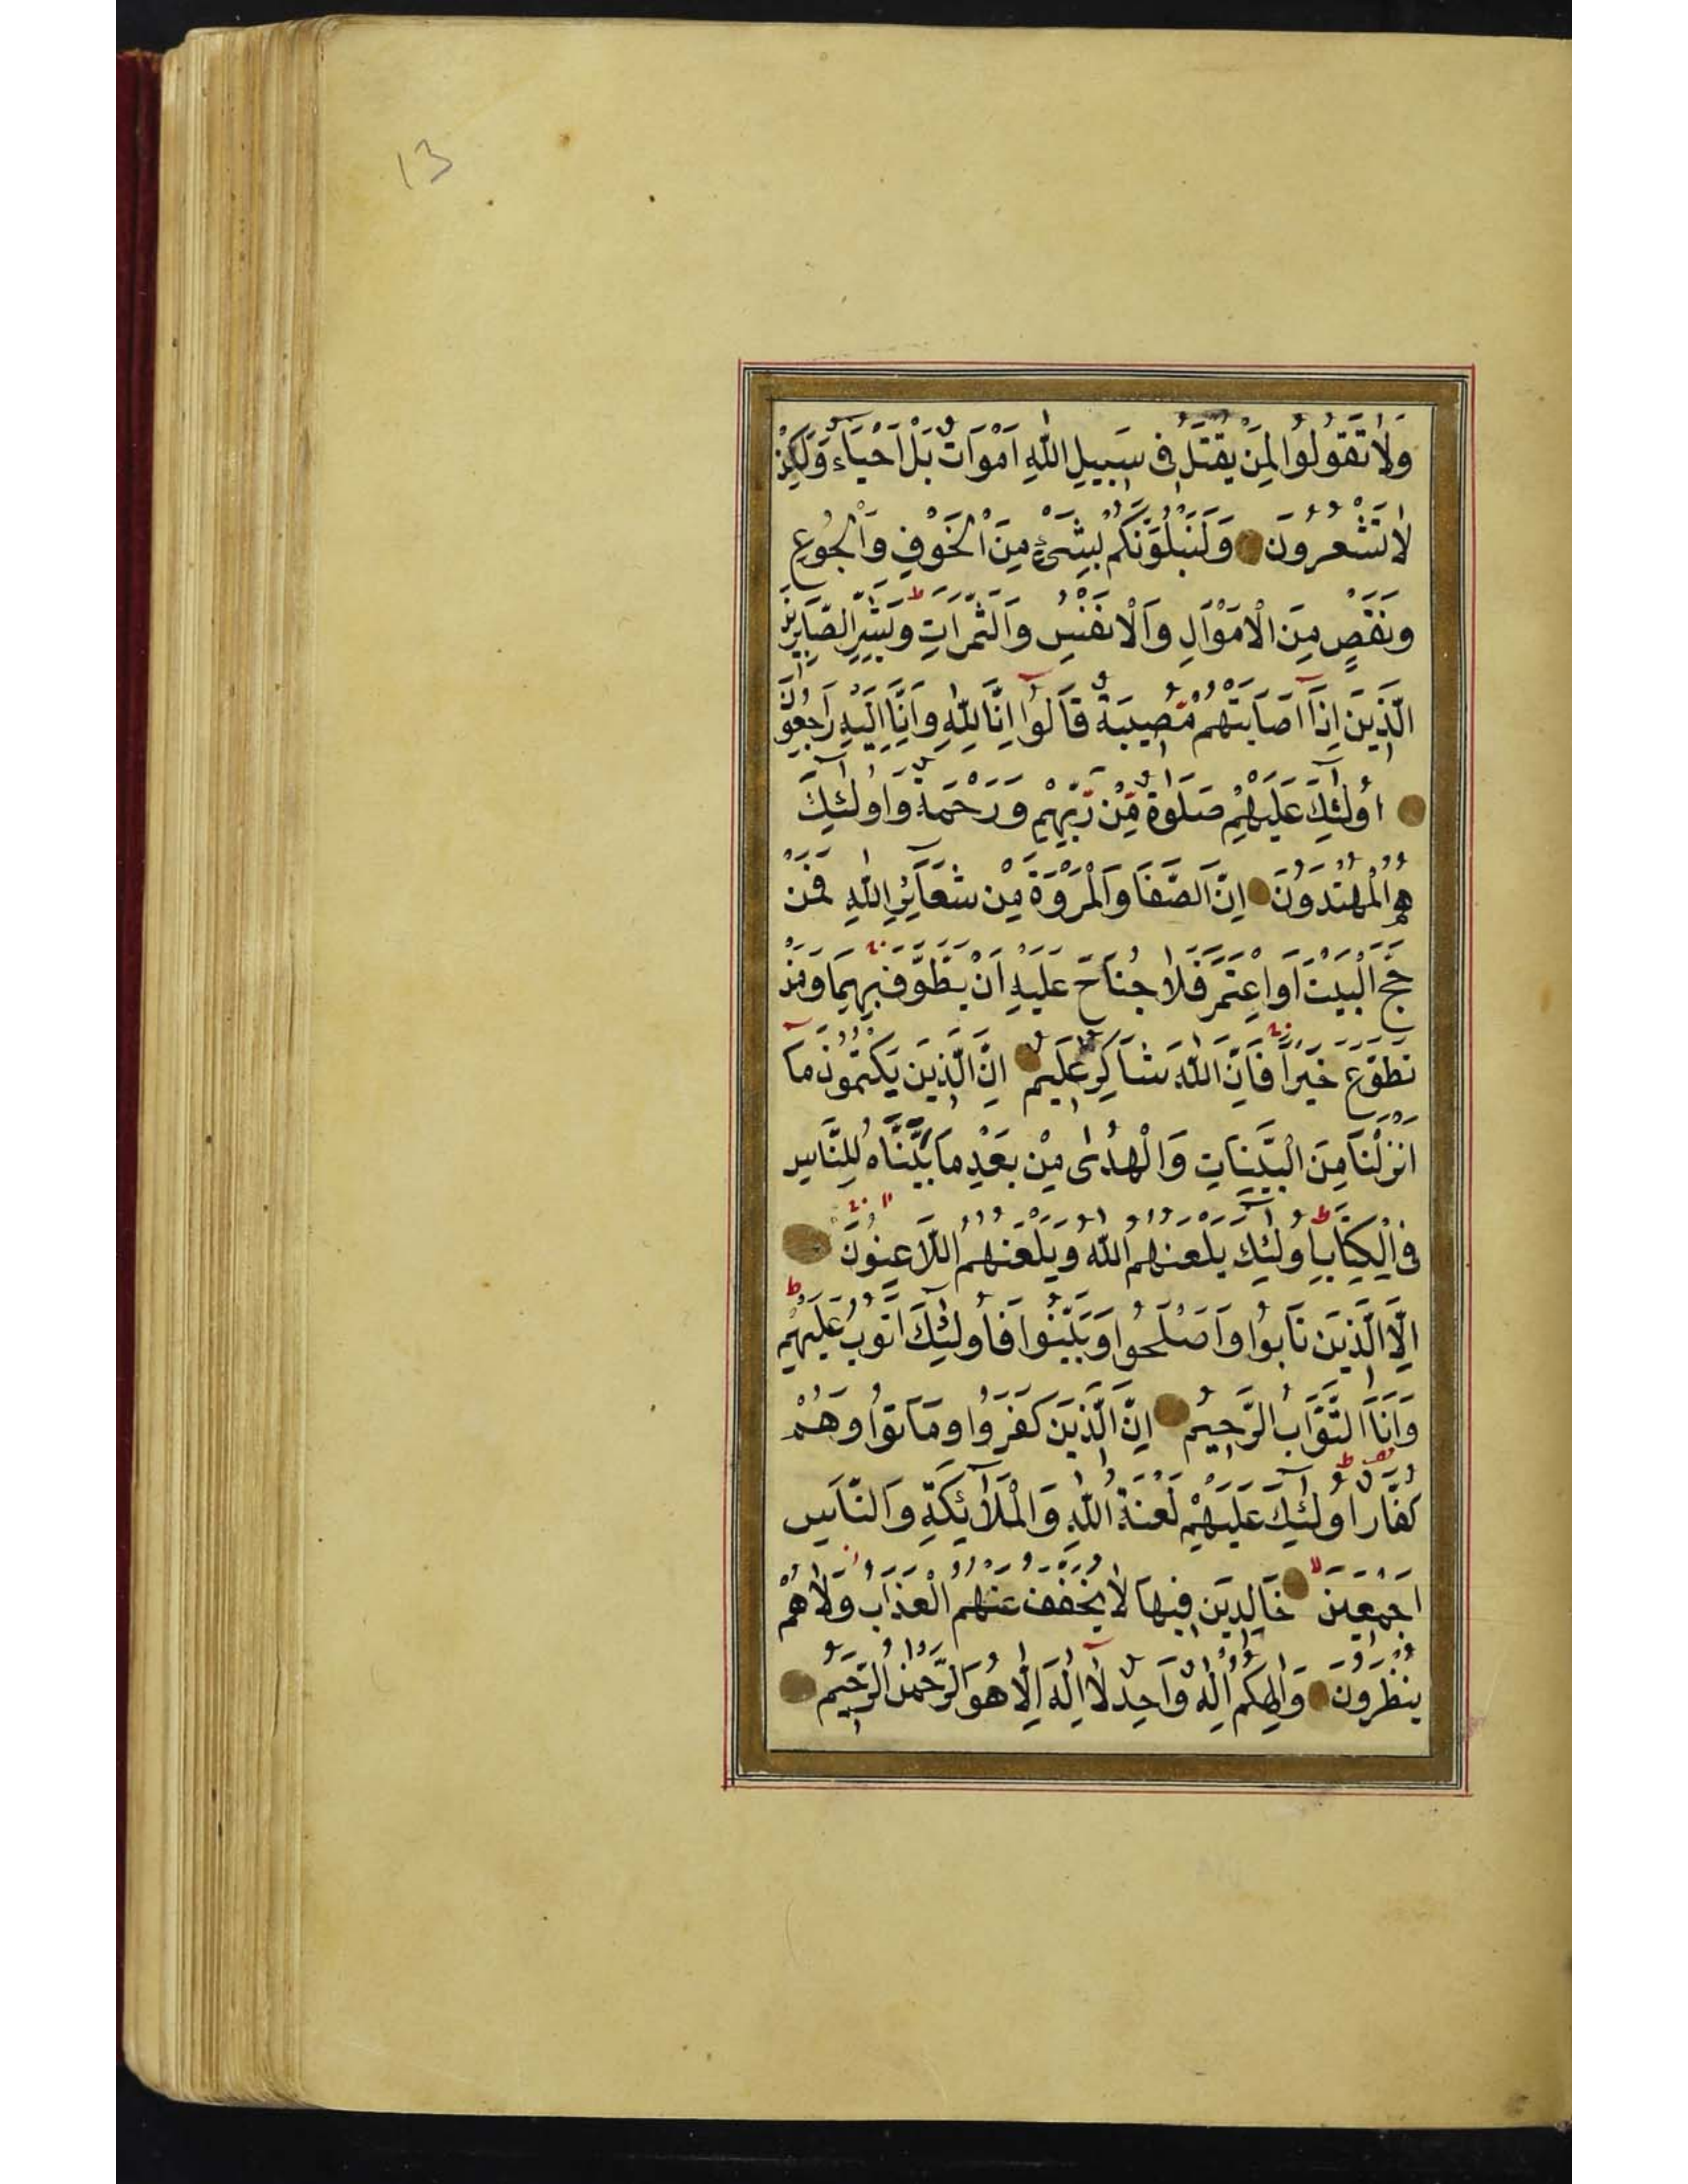 13
وَلَا تَقُولُوا لِمَنْ يُقْتَلُ فِى سَبِيلِ اللّٰهِ اَمْوَاتٌ بَلْ اَحْيَاءٌ وَلٰكِنْ
لَا تَشْعُرُونَ وَلَنَبْلُوَنَّكُمْ بِشَىْءٍ مِنَ الْخَوْفِ وَالْجُوعِ
وَنَقْصٍ مِنَ الْاَمْوَالِ وَالْاَنْفُسِ وَالثَّمَرَاتِ ط وَبَشِّرِ الصَّابِرِينَ
الَّذِينَ اِذَا اَصَابَتْهُمْ مُصِيبَةٌ قَالُوا اِنَّا لِلّٰهِ وَاِنَّا اِلَيْهِ رَاجِعُونَ
اُولٰئِكَ عَلَيْهِمْ صَلَوٰةٌ مِنْ رَبِّهِمْ وَرَحْمَةٌ وَاُولٰئِكَ
هُمُ الْمُهْتَدُونَ اِنَّ الصَّفَا وَالْمَرْوَةَ مِنْ شَعَائِرِ اللّٰهِ فَمَنْ
حَجَّ الْبَيْتَ اَوِ اعْتَمَرَ فَلَا جُنَاحَ عَلَيْهِ اَنْ يَطَّوَّفَ بِهِمَا وَمَنْ
تَطَوَّعَ خَيْرًا فَاِنَّ اللّٰهَ شَاكِرٌ عَلِيمٌ اِنَّ الَّذِينَ يَكْتُمُونَ مَا
اَنْزَلْنَا مِنَ الْبَيِّنَاتِ وَالْهُدٰى مِنْ بَعْدِ مَا بَيَّنَّاهُ لِلنَّاسِ
فِى الْكِتَابِ ط اُولٰئِكَ يَلْعَنُهُمُ اللّٰهُ وَيَلْعَنُهُمُ اللَّاعِنُونَ
اِلَّا الَّذِينَ تَابُوا وَاَصْلَحُوا وَبَيَّنُوا فَاُولٰئِكَ اَتُوبُ عَلَيْهِمْ ط
وَاَنَا التَّوَّابُ الرَّحِيمُ اِنَّ الَّذِينَ كَفَرُوا وَمَاتُوا وَهُمْ
كُفَّارٌ اُولٰئِكَ عَلَيْهِمْ لَعْنَةُ اللّٰهِ وَالْمَلٰائِكَةِ وَالنَّاسِ
اَجْمَعِينَ خَالِدِينَ فِيهَا لَا يُخَفَّفُ عَنْهُمُ الْعَذَابُ وَلَا هُمْ
يُنْظَرُونَ وَاِلٰهُكُمْ اِلٰهٌ وَاحِدٌ لَا اِلٰهَ اِلَّا هُوَ الرَّحْمٰنُ الرَّحِيمُ